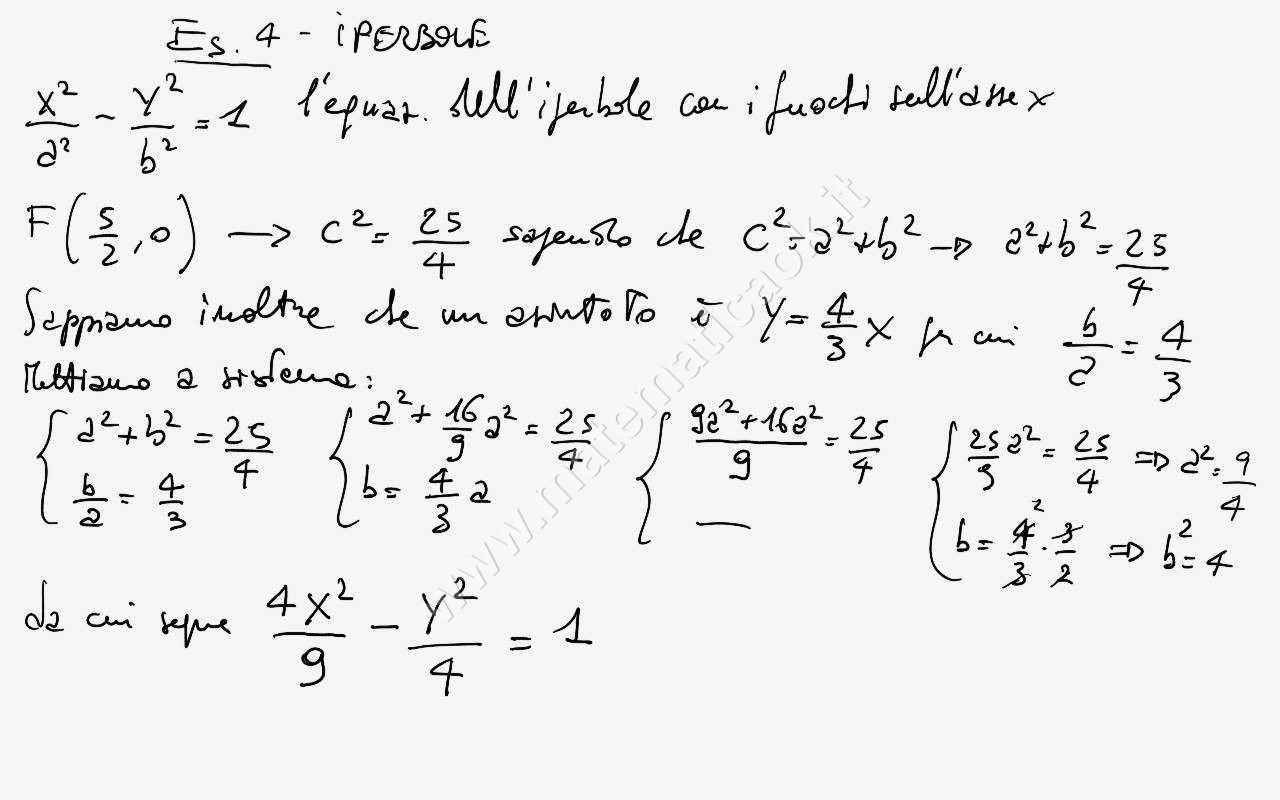 Es. 4 - iPERBOLE
x²/a² - y²/b² = 1 l'equaz. dell'iperbole con i fuochi sull'asse x
F(5/2, 0) → c² = 25/4 sapendo che c² = a² + b² → a² + b² = 25/4
Sappiamo inoltre che un asintoto è y = 4/3 x per cui b/a = 4/3
Mettiamo a sistema:
{ a² + b² = 25/4 { a² + 16/9 a² = 25/4 { (9a² + 16a²)/9 = 25/4 { 25/9 a² = 25/4 ⇒ a² = 9/4
b/a = 4/3 b = 4/3 a — b = 4/3 · 3/2 ⇒ b² = 4
da cui segue 4x²/9 - y²/4 = 1
www.matematicaok.it